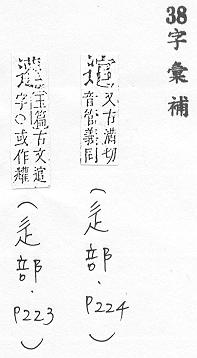 38字彙補
又古滿切
音管義同
(辵部.P224)
玉篇古文逭
字○或作
(辵部.P223)